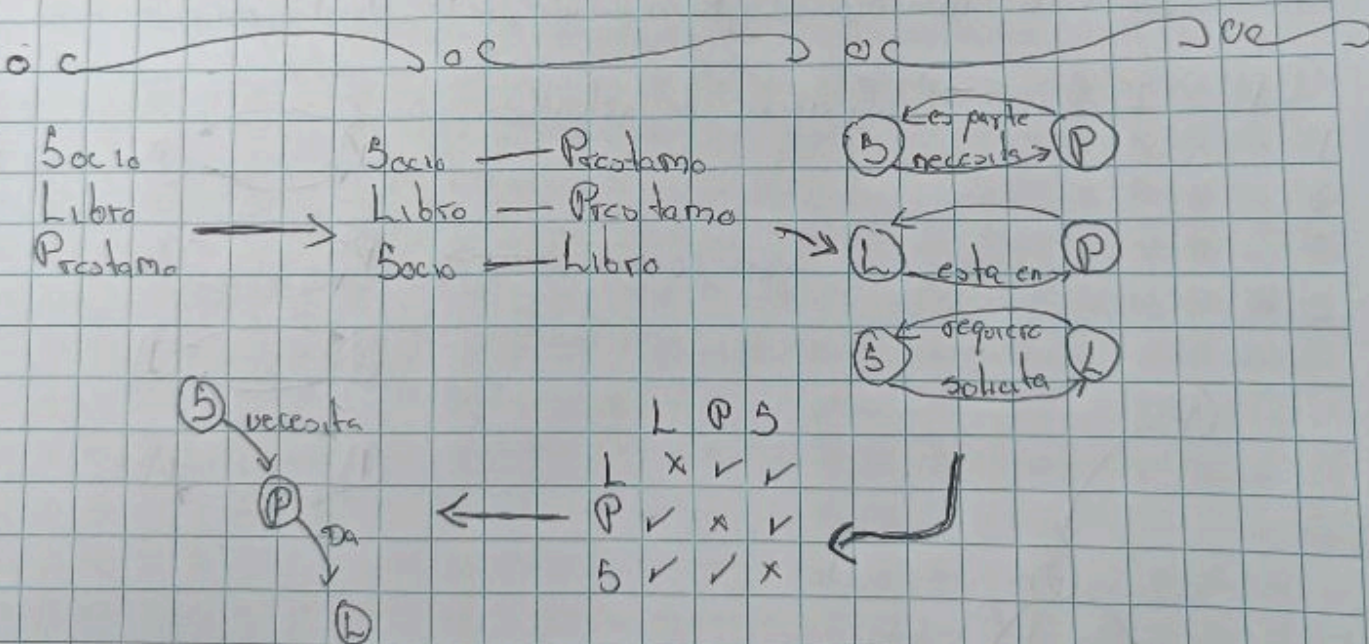 Socio
Libro
Prestamo
Socio — Prestamo
Libro — Prestamo
Socio — Libro
es parte
S necesita P
L esta en P
requiere
S solicita L
S necesita
P Da
L
L P S
L x ✓ ✓
P ✓ x ✓
S ✓ ✓ x